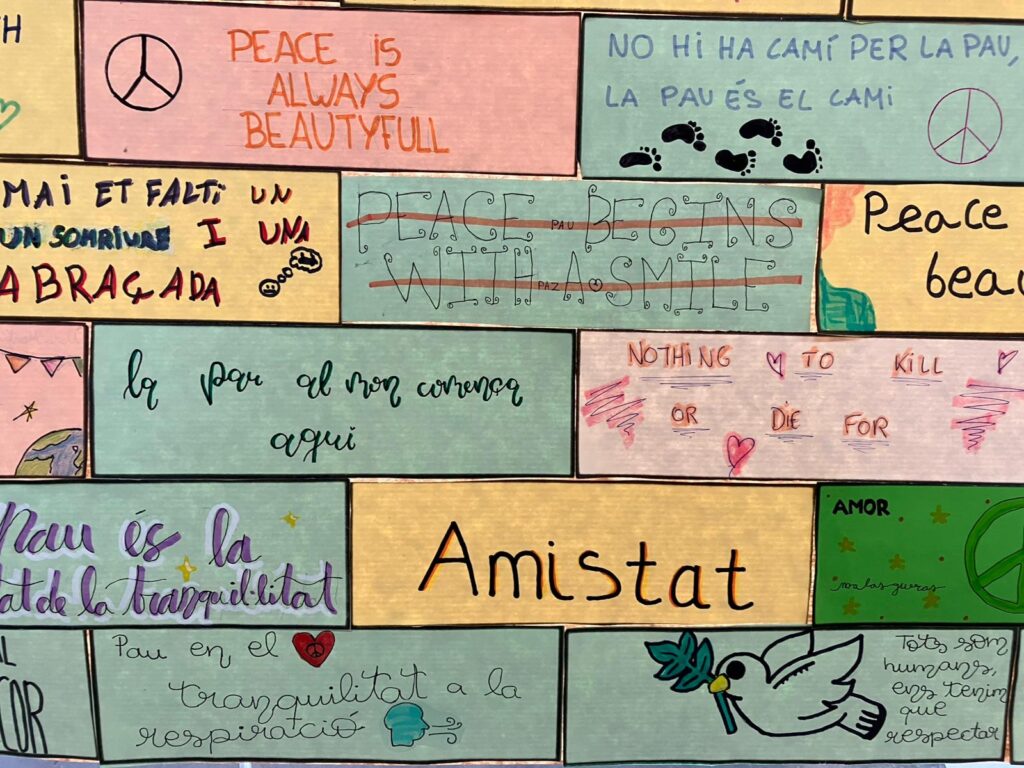 TH
PEACE is
ALWAYS
BEAUTYFULL
NO HI HA CAMÍ PER LA PAU,
LA PAU ÉS EL CAMI
MAI ET FALTI UN
UN SOMRIURE I UNA
ABRAÇADA
PEACE PAU BEGINS
WITH PAZ A SMILE
Peace
beau
la pau al mon comença
aqui
NOTHING TO KILL
OR DIE FOR
Pau és la
tat de la tranquil·litat
Amistat
AMOR
no a las gueras
AL
COR
Pau en el
tranquilitat a la
respiració
Tots som
humans,
ens tenim
que
respectar